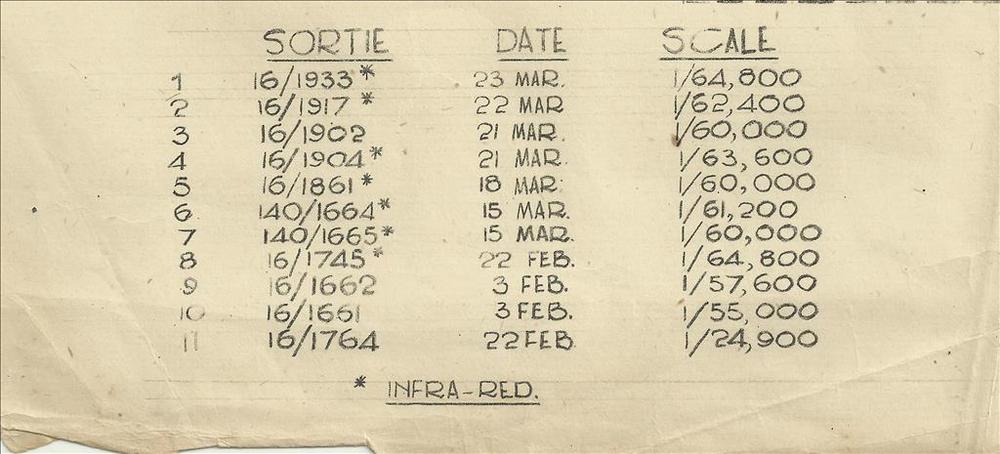 SORTIE DATE SCALE
1 16/1933* 23 MAR. 1/64,800
2 16/1917 * 22 MAR 1/62,400
3 16/1902 21 MAR. 1/60,000
4 16/1904* 21 MAR. 1/63,600
5 16/1861* 18 MAR. 1/60,000
6 140/1664* 15 MAR. 1/61,200
7 140/1665* 15 MAR. 1/60,000
8 16/1745* 22 FEB. 1/64,800
9 16/1662 3 FEB. 1/57,600
10 16/1661 3 FEB. 1/55,000
11 16/1764 22 FEB. 1/24,900
* INFRA-RED.